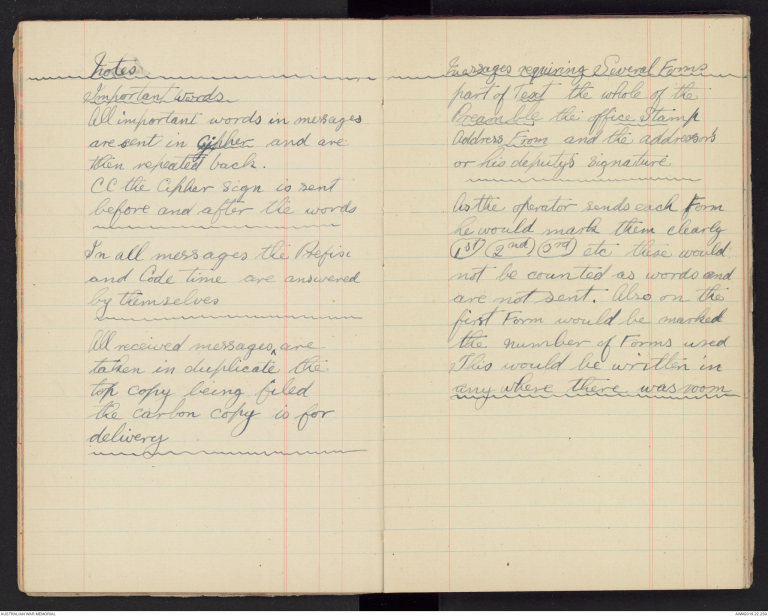 Notes
Important words
All important words in messages
are sent in Cipher and are
then repeated back.
CC the Cipher sign is sent
before and after the words
In all messages the Prefix
and Code time are answered
by themselves
All received messages, are
taken in duplicate the
top copy being filed
the carbon copy is for
delivery
Messages requiring Several Forms
part of Text the whole of the
Preamble the office Stamp
Address From and the addressors
or his deputys signature
As the operator sends each Form
he would mark them clearly
1st 2nd 3rd etc these would
not be counted as words and
are not sent. Also on the
first Form would be marked
the number of Forms used
This would be written in
any where there was room
AUSTRALIAN WAR MEMORIAL